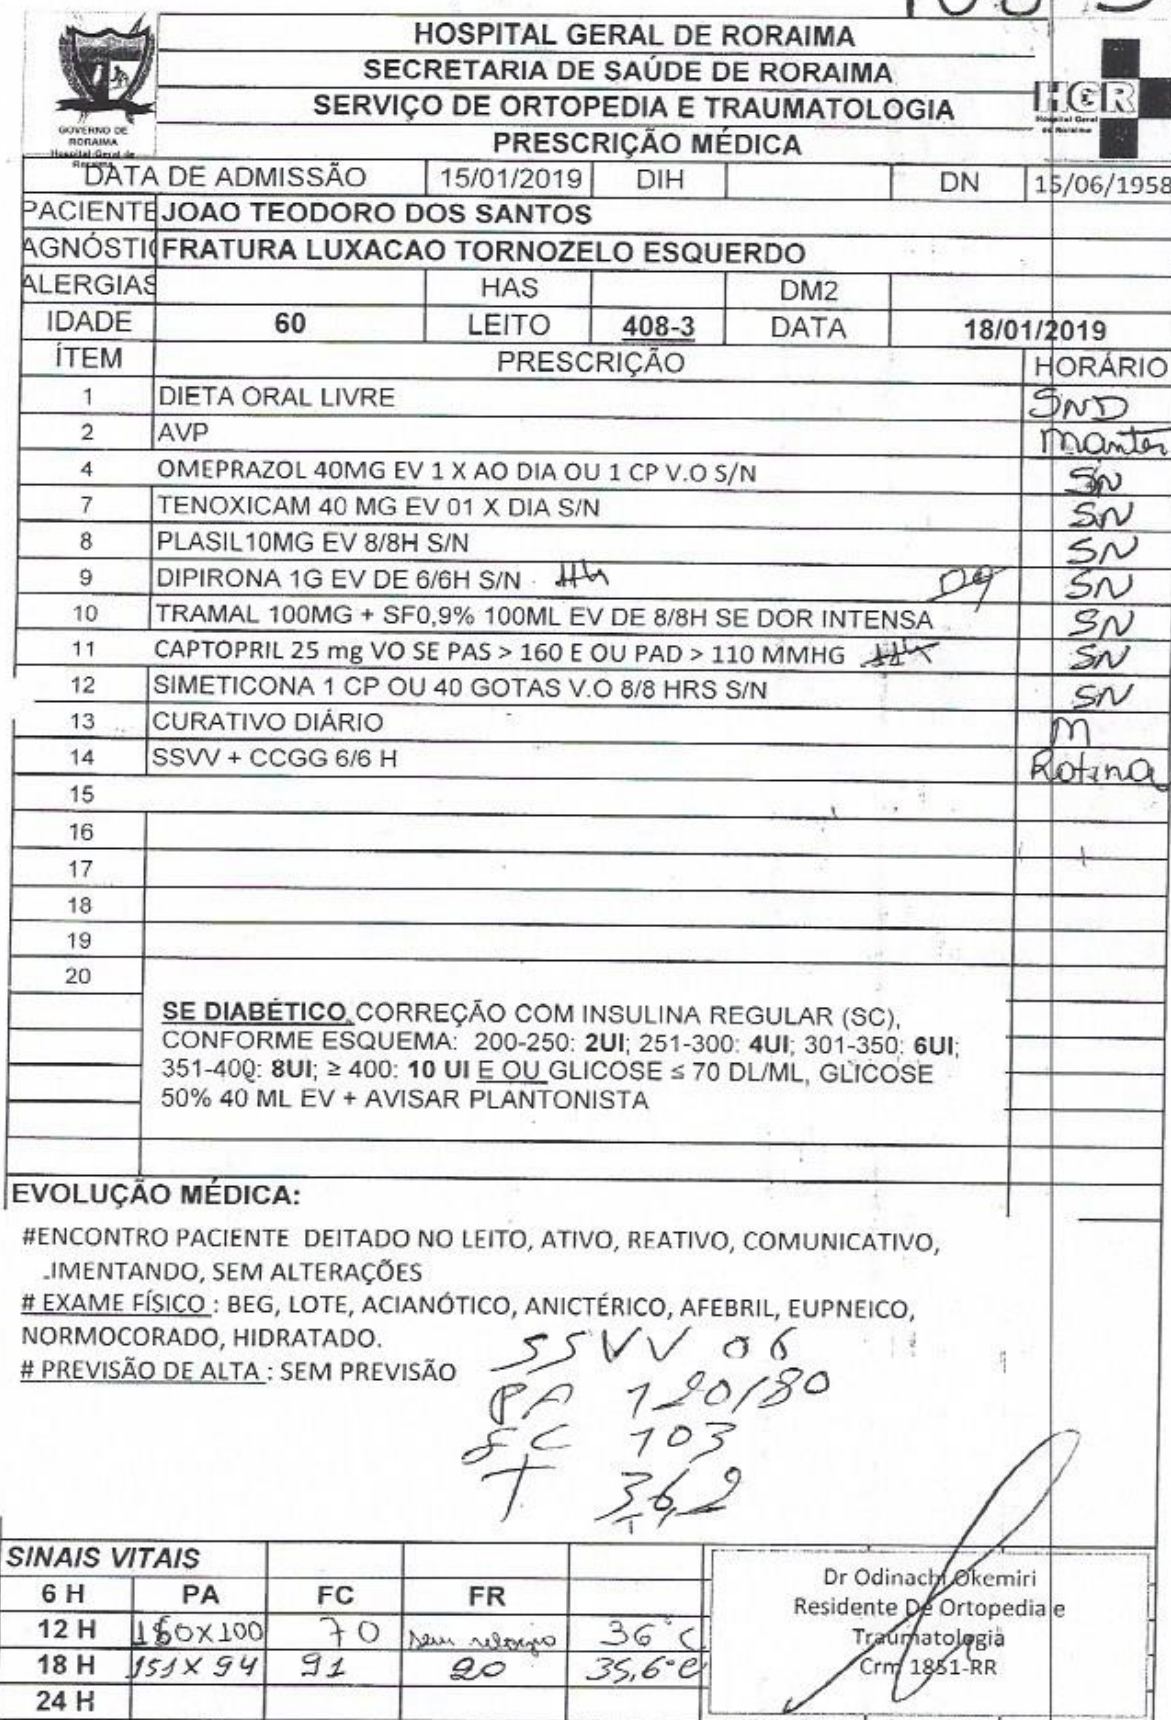 HOSPITAL GERAL DE RORAIMA
SECRETARIA DE SAÚDE DE RORAIMA
SERVIÇO DE ORTOPEDIA E TRAUMATOLOGIA
PRESCRIÇÃO MÉDICA
GOVERNO DE RORAIMA
Hospital Geral de Roraima
HGR
Hospital Geral de Roraima
DATA DE ADMISSÃO 15/01/2019 DIH DN 15/06/1958
PACIENTE JOAO TEODORO DOS SANTOS
AGNÓSTIC FRATURA LUXACAO TORNOZELO ESQUERDO
ALERGIAS HAS DM2
IDADE 60 LEITO 408-3 DATA 18/01/2019
ÍTEM PRESCRIÇÃO HORÁRIO
1 DIETA ORAL LIVRE SND
2 AVP Manter
4 OMEPRAZOL 40MG EV 1 X AO DIA OU 1 CP V.O S/N SN
7 TENOXICAM 40 MG EV 01 X DIA S/N SN
8 PLASIL10MG EV 8/8H S/N SN
9 DIPIRONA 1G EV DE 6/6H S/N SN
10 TRAMAL 100MG + SF0,9% 100ML EV DE 8/8H SE DOR INTENSA SN
11 CAPTOPRIL 25 mg VO SE PAS > 160 E OU PAD > 110 MMHG SN
12 SIMETICONA 1 CP OU 40 GOTAS V.O 8/8 HRS S/N SN
13 CURATIVO DIÁRIO M
14 SSVV + CCGG 6/6 H Rotina
15
16
17
18
19
20
SE DIABÉTICO, CORREÇÃO COM INSULINA REGULAR (SC),
CONFORME ESQUEMA: 200-250: 2UI; 251-300: 4UI; 301-350: 6UI;
351-400: 8UI; ≥ 400: 10 UI E OU GLICOSE ≤ 70 DL/ML, GLICOSE
50% 40 ML EV + AVISAR PLANTONISTA
EVOLUÇÃO MÉDICA:
#ENCONTRO PACIENTE DEITADO NO LEITO, ATIVO, REATIVO, COMUNICATIVO,
.IMENTANDO, SEM ALTERAÇÕES
# EXAME FÍSICO : BEG, LOTE, ACIANÓTICO, ANICTÉRICO, AFEBRIL, EUPNEICO,
NORMOCORADO, HIDRATADO.
# PREVISÃO DE ALTA : SEM PREVISÃO
SSVV 06
PA 120/80
FC 103
T 36,2
SINAIS VITAIS
6 H PA FC FR
12 H X100 70 sem relogio 36°C
18 H 151X94 91 20 35,6°C
24 H
Dr Odinachi Okemiri
Residente De Ortopedia e
Traumatologia
Crm 1851-RR